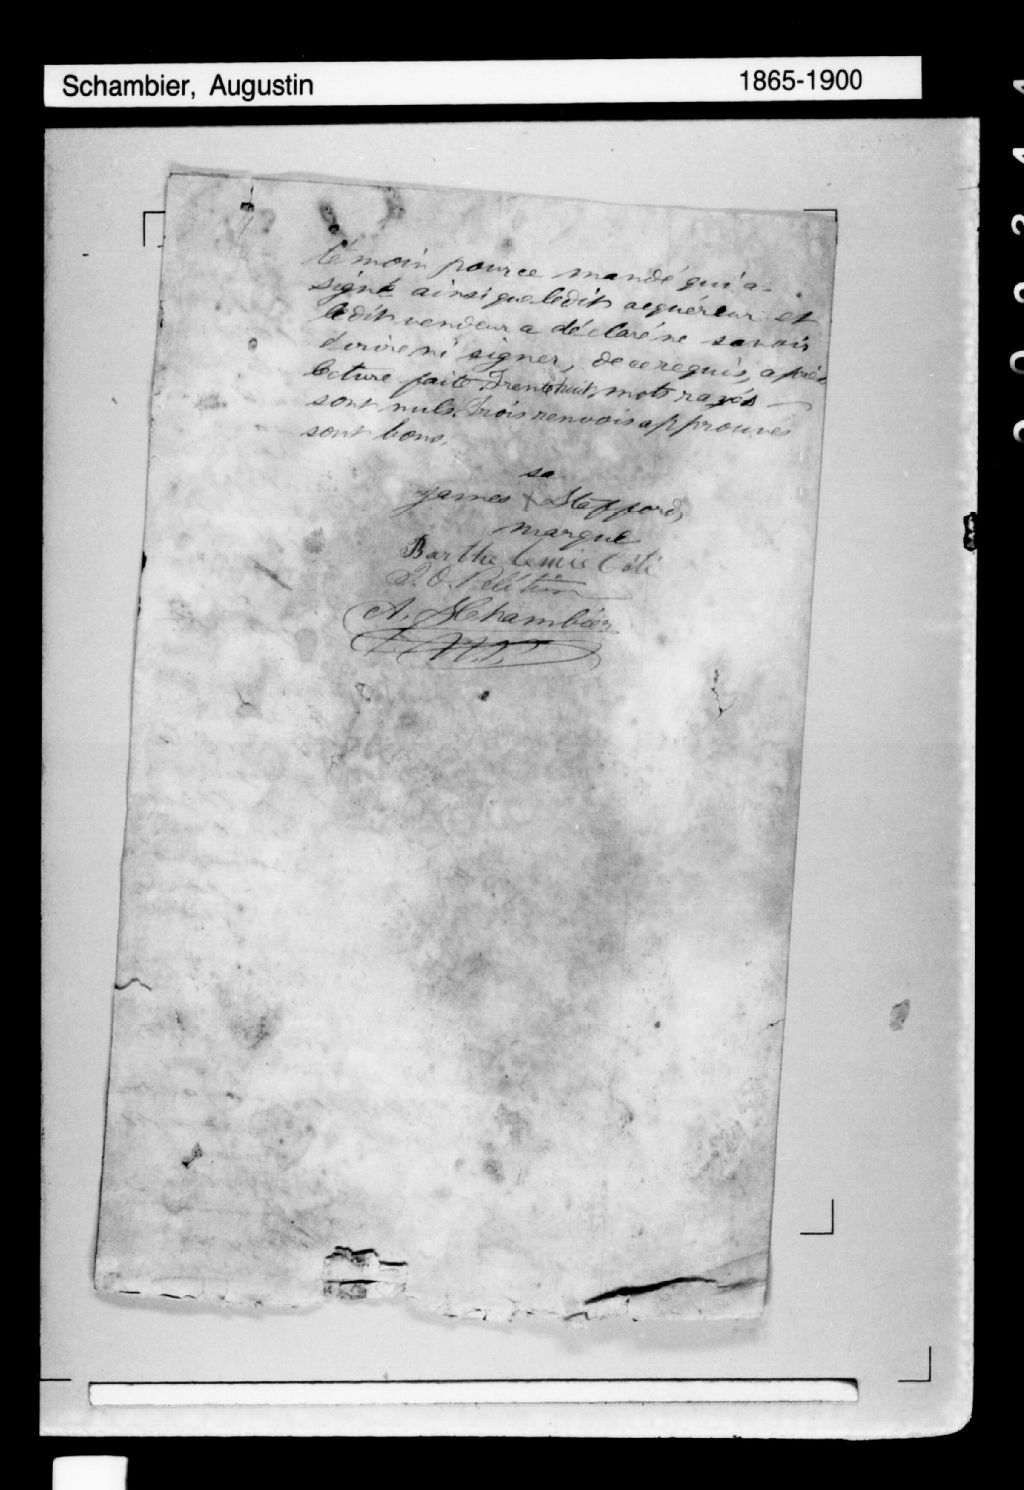 Schambier, Augustin 1865-1900
témoin pour ce mandé qui a
signé ainsi que ledit acquéreur et
ledit vendeur a déclaré ne savoir
écrire ni signer, de ce requis, après
lecture faite. Trente huit mots rayés
sont nuls. Trois renvois approuvés
sont bons.
sa
James X Stafford,
marque
Barthelemie Côté
A. SChambier
N.P.